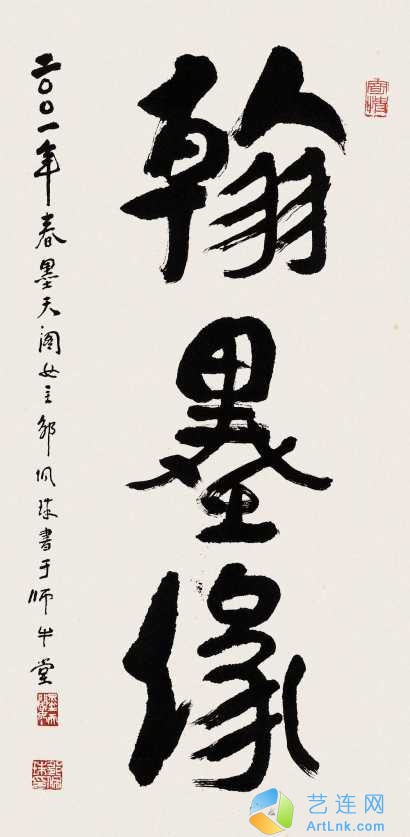 翰墨缘
二〇〇一年春墨天阁女主邹佩珠書于师牛堂
艺连网
ArtLnk.com